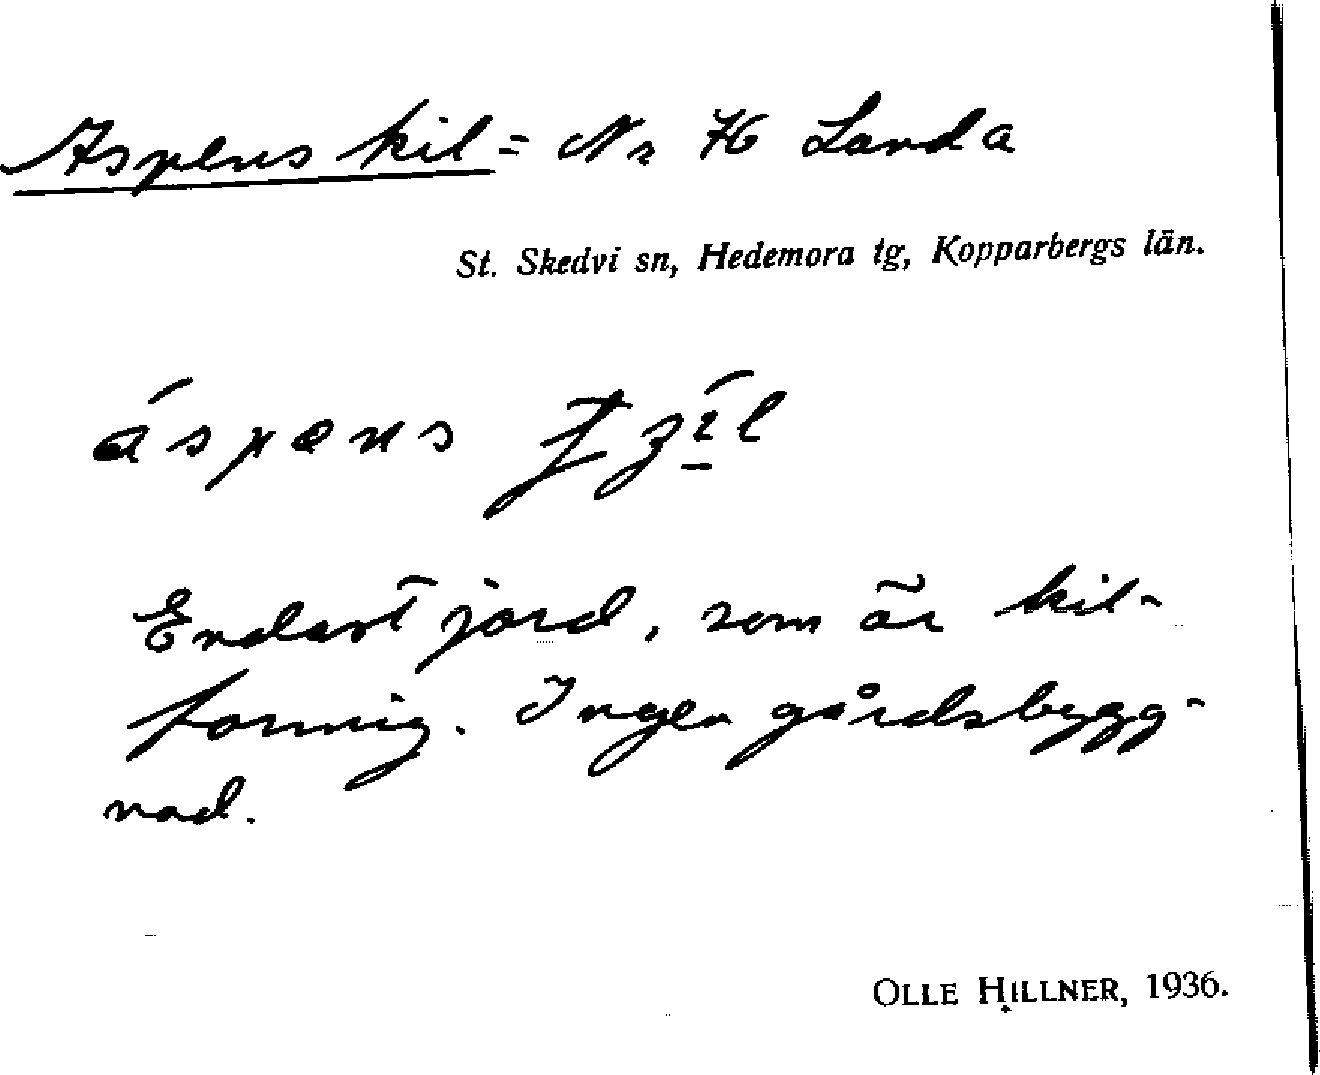 Aspens kil = Nr 16 Landa
St. Skedvi sn, Hedemora tg, Kopparbergs län.
áspens
Endast jord, som är kil-
formig. Ingen gårdsbygg-
nad.
OLLE HILLNER, 1936.